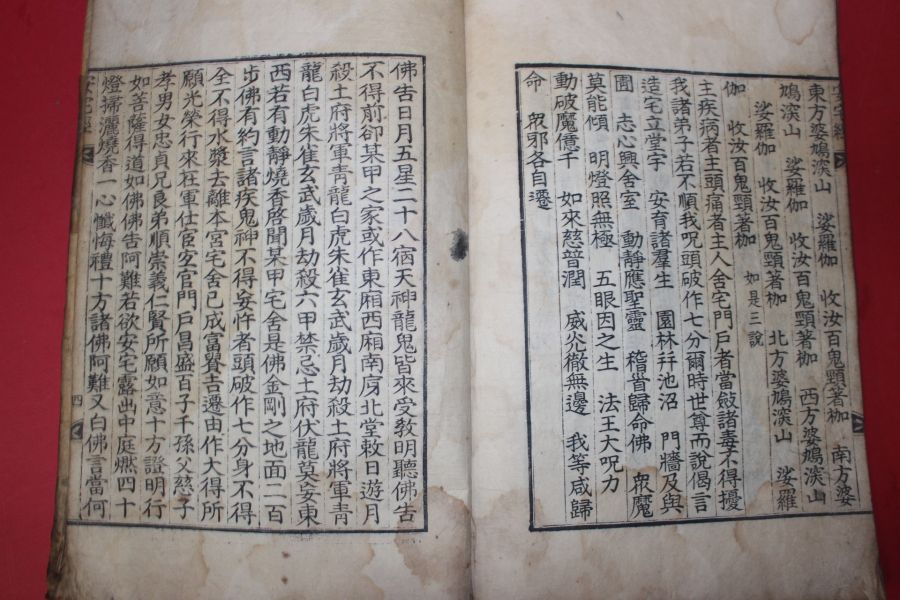 東方婆鳩深山　娑羅伽　收汝百鬼頸著枷　南方婆
鳩深山　娑羅伽　收汝百鬼頸著枷　西方婆鳩深山
娑羅伽　收汝百鬼頸著枷　北方婆鳩深山　娑羅
伽　收汝百鬼頸著枷　如是三說
主疾病者主頭痛者主人舍宅門戶者當斂諸毒不得擾
我諸弟子若不順我呪頭破作七分爾時世尊而說偈言
造宅立堂宇　安育諸羣生　園林幷池沼　門牆及與
圊　志心興舍室　動靜應聖靈　稽首歸命佛　衆魔
莫能傾　明燈照無極　五眼因之生　法王大呪力
動破魔億千　如來慈普潤　威炎徹無邊　我等咸歸
命　衆邪各自遷
佛告日月五星二十八宿天神龍鬼皆來受敎明聽佛告
不得前却某甲之家或作東廂西廂南房北堂敕日遊月
殺土府將軍靑龍白虎朱雀玄武歲月劫殺土府將軍靑
龍白虎朱雀玄武歲月劫殺六甲禁忌土府伏龍莫妄東
西若有動靜燒香啓聞某甲宅舍是佛金剛之地面二百
步佛有約言諸疾鬼神不得妄忤者頭破作七分身不得
全不得水漿去離本宮宅舍已成富貴吉遷由作大得所
願光榮行來在軍仕宦宜官門戶昌盛百子千孫父慈子
孝男女忠貞兄良弟順崇義仁賢所願如意十方證明行
如菩薩得道如佛佛告阿難若欲安宅露出中庭燃四十
燈掃灑燒香一心懺悔禮十方諸佛阿難又白佛言當何
四